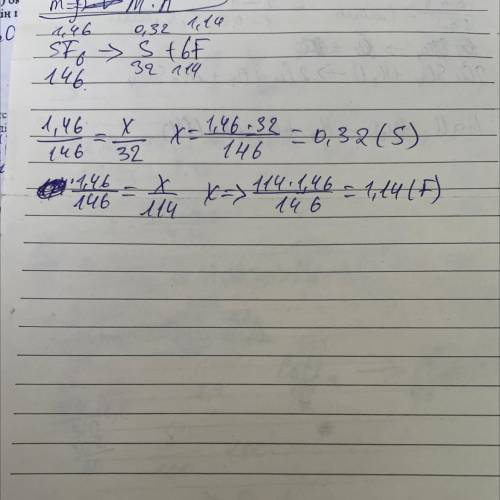 m=
M · n
1,46 0,32 1,14
SF₆ → S + 6F
146 32 114
1,46/146 = x/32 x = 1,46·32/146 = 0,32 (S)
1,46/146 = x/114 x => 114·1,46/146 = 1,14 (F)